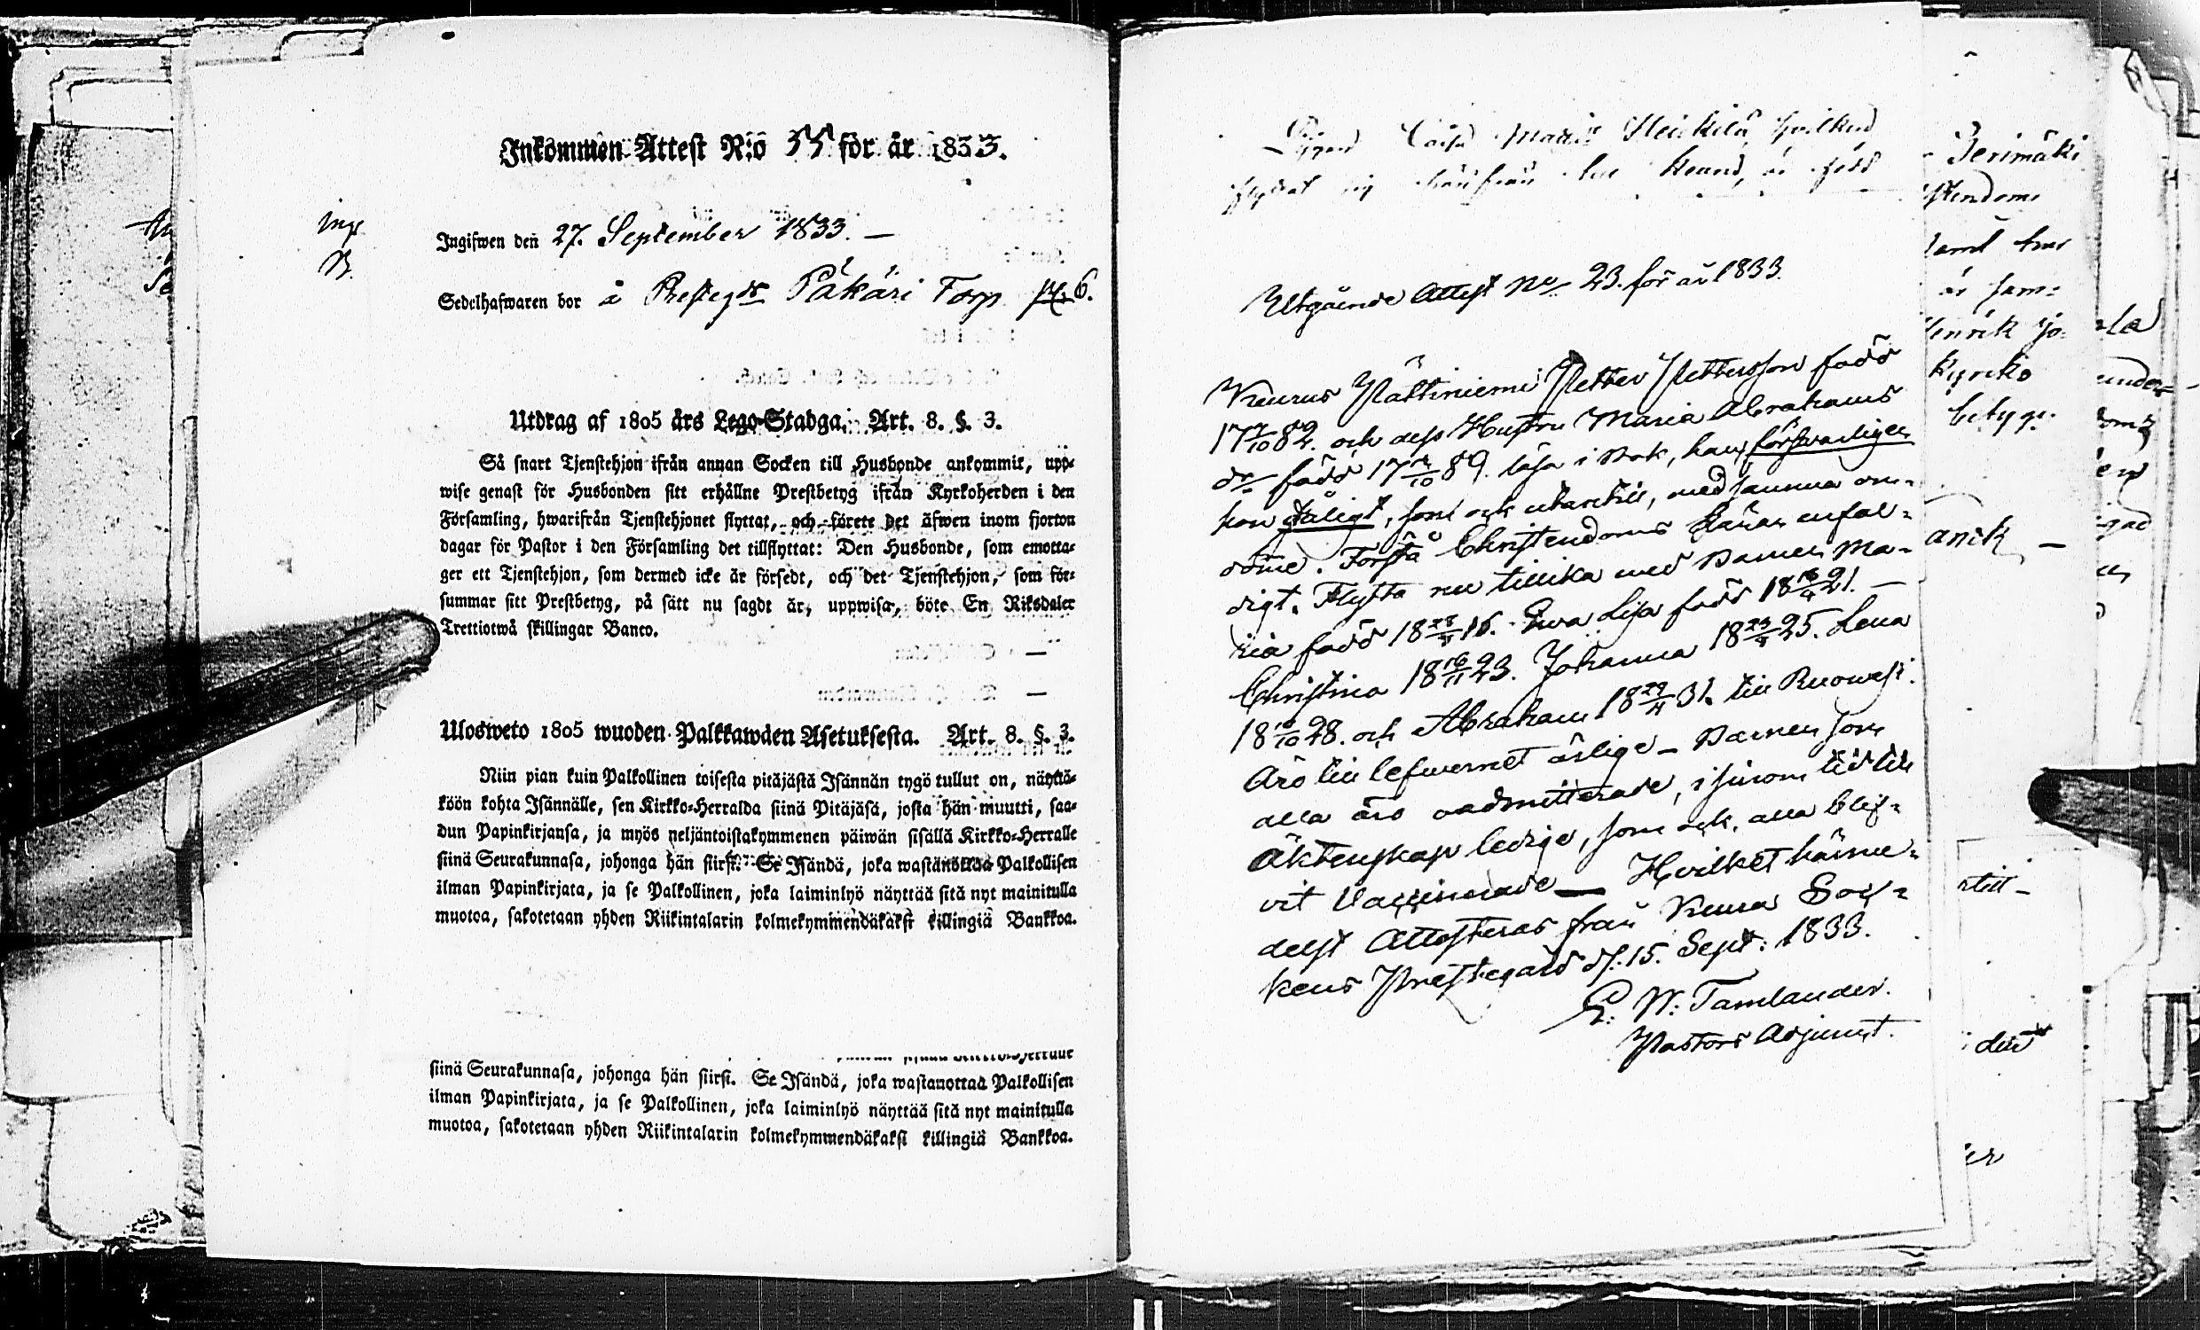 Inkommen Attest N:o 55 för år 1833.
Ingifwen den 27. September 1833. —
Sedelhafwaren bor å Prestegds Päkäri Torp
6.
Utdrag af 1805 års Lego-Stadga. Art. 8. §. 3.
Så snart Tjenstehjon ifrån annan Socken till Husbonde ankommit, upp-
wise genast för Husbonden sitt erhållne Prestbetyg ifrån Kyrkoherden i den
Församling, hwarifrån Tjenstehjonet flyttat, och förete det äfwen inom fjorton
dagar för Pastor i den Församling det tillflyttat: Den Husbonde, som emotta-
ger ett Tjenstehjon, som dermed icke är försedt, och det Tjenstehjon, som för-
summar sitt Prestbetyg, på sätt nu sagdt är, uppwisa, böte En Riksdaler
Trettiotwå skillingar Banco.
Ulosweto 1805 wuoden Palkkawäen Asetuksesta. Art. 8. §. 3.
Niin pian kuin Palkollinen toisesta pitäjästä Isännän tygö tullut on, näyttä-
köön kohta Isännälle, sen Kirkko-Herralda siinä Pitäjäsä, josta hän muutti, saa-
dun Papinkirjansa, ja myös neljäntoistakymmenen päiwän sisällä Kirkko-Herralle
siinä Seurakunnasa, johonga hän siirsi. Se Isändä, joka wastanottaa Palkollisen
ilman Papinkirjata, ja se Palkollinen, joka laiminlyö näyttää sitä nyt mainitulla
muotoa, sakotetaan yhden Riikintalarin kolmekymmendäkaksi killingiä Bankkoa.
siinä Seurakunnasa, johonga hän siirsi. Se Isändä, joka wastanottaa Palkollisen
ilman Papinkirjata, ja se Palkollinen, joka laiminlyö näyttää sitä nyt mainitulla
muotoa, sakotetaan yhden Riikintalarin kolmekymmendäkaksi killingiä Bankkoa.
Pigan Caisa Maria Heikkilä, hvilken
flyttat sig härifrån är född
Utgående Attest No 23. för år 1833
Keurus Pättiniemi Petter Pettersson född
17 7/10 82. och dess Hustru Maria Abrahams
dr född 17 89. läsa i Bok, han försvarligen
hon dåligt, som ock utantill, med samma om-
döme. Förstå Christendoms Läran enfal-
digt. Flytta nu tillika med Barnen Ma-
ria född 18 16. Ewa Lisa född 18 21. —
Christina 18 16/11 23. Johanna 18 25. Lena
18 28. och Abraham 18 31. till Ruowesi.
Äro till lefwernet ärlige — Barnen som
alla äro oadmitterade, i sinom tid till
Äktenskap ledige, som ock, alla blif-
vit Vaccinerade — Hvilket härme-
delst Attesteras från Keuru Soc-
kens Prestegård d. 15. Sept: 1833.
G. W: Tamlander.
Pastors Adjunct.